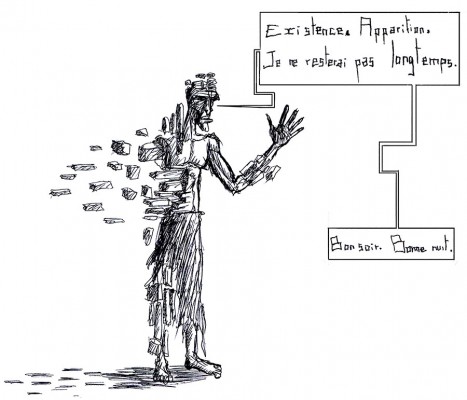 Existence. Apparition.
Je ne resterai pas longtemps.
Bonsoir. Bonne nuit.